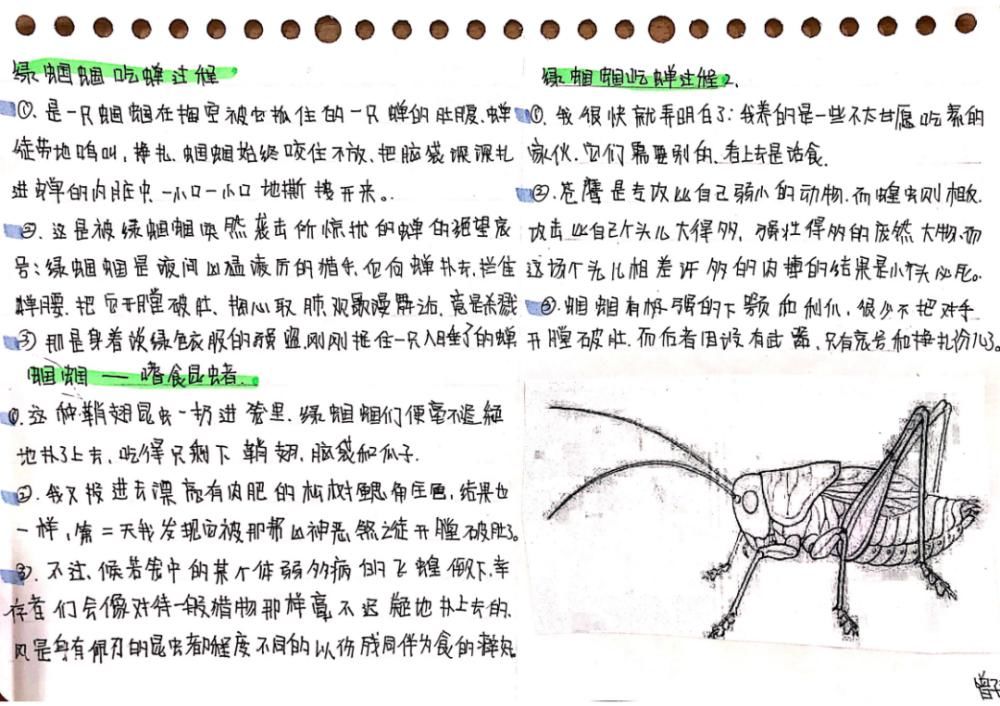 绿蝈蝈吃蝉过程
①. 是一只蝈蝈在掏空被它抓住的一只蝉的肚腹. 蝉
徒劳地鸣叫, 挣扎. 蝈蝈始终咬住不放. 把脑袋深深扎
进蝉的内脏中 一小口一小口地撕拽开来。
②. 这是被绿蝈蝈突然袭击所惊扰的蝉的绝望哀
号: 绿蝈蝈是夜间凶猛凌厉的猎手. 它向蝉扑去, 拦住
蝉腰. 把它开膛破肚. 掏心取肺 观歌漫舞 竟是杀戮
③ 那是身着淡绿色衣服的强盗. 刚刚抓住一只入睡了的蝉
蝈蝈 — 嗜食昆虫者.
①. 这种鞘翅昆虫一扔进笼里. 绿蝈蝈们便毫不迟疑
地扑了上去. 吃得只剩下鞘翅. 脑袋和爪子.
②. 我又投进去漂亮有肉肥的松树鳃角金龟, 结果也
一样, 第二天我发现它被那帮凶神恶煞之徒开膛破肚了。
③. 不过. 倘若笼中的某个体弱多病的飞蝗倒下. 幸
存者们会像对待一般猎物那样毫不迟疑地扑上去的.
凡是身有佩刃的昆虫都程度不同的以伤残同伴为食的癖好.
绿蝈蝈吃蝉过程2.
①. 我很快就弄明白了: 我养的是一些不太甘愿吃素的
家伙. 它们需要别的. 看上去是活食.
②. 苍鹰是专攻比自己弱小的动物. 而蝗虫则相反.
攻击比自己个头儿大得多, 强壮得多的庞然大物. 而
这场个头儿相差许多的肉搏的结果是小个头必死。
③. 蝈蝈有极强的下颚和利爪, 很少不把对手
开膛破肚. 而后者因没有武器, 只有哀号和挣扎份儿了。